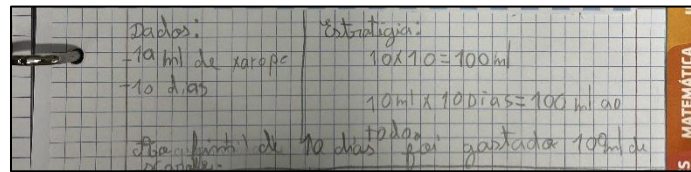 Dados:
-10 ml de xarope
-10 dias
Estratigia:
10x10=100ml
10ml x 10Dias=100 ml ao
todo.
Ao de 10 dias foi gastado 100ml de
MATEMÁTICA